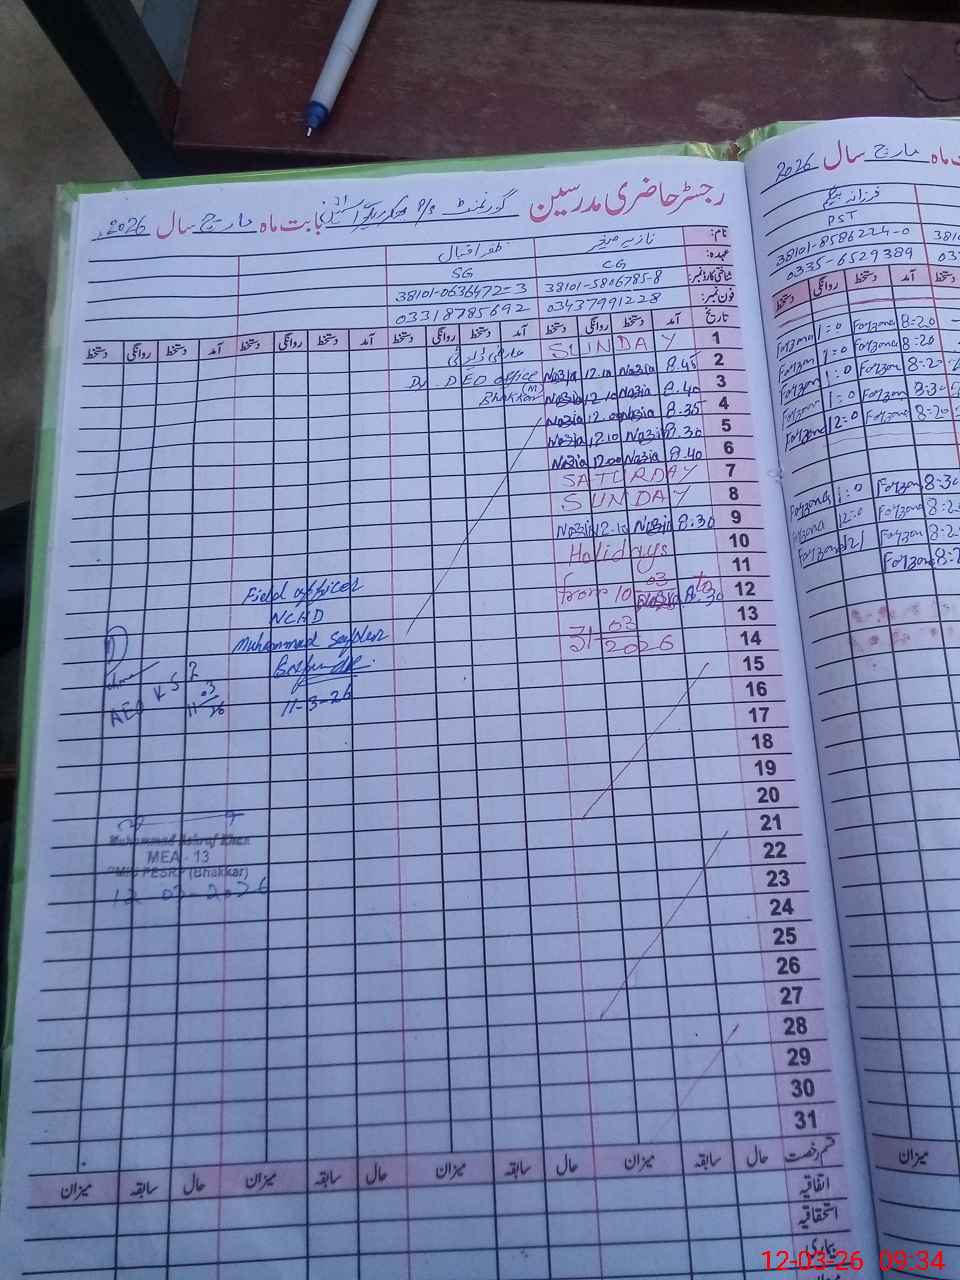 رجسٹر حاضری مدرسین گورنمنٹ P/S بابت ماہ مارچ سال 2026
نام: نازیہ صغیر ظفر اقبال
عہدہ: CG SG
شناختی کارڈ نمبر: 38101-5806785-8 38101-0636472-3
فون نمبر: 03437991228 03318785692
تاریخ آمد دستخط روانگی دستخط آمد دستخط روانگی دستخط آمد دستخط روانگی دستخط آمد دستخط روانگی دستخط
1 SUNDAY عارضی ڈیوٹی
2 8.45 Nazia 12.10 Nazia DEO office
3 8.40 Nazia 12.10 Nazia (M) Bhakkar
4 8.35 Nazia 12.00 Nazia
5 8.30 Nazia 12.10 Nazia
6 8.40 Nazia 12.00 Nazia
7 SATURDAY
8 SUNDAY
9 8.30 Nazia 12.10 Nazia
10 Holidays
11
12 from 10-03 to Nazia 8.30
13 31-03
14 2026
15
16
17
18
19
20
21
22
23
24
25
26
27
28
29
30
31
Field officer
NCHD
Muhammad
11-3-26
AEO
11-03-26
Muhammad Ashraf Khan
MEA - 13
PESRP (Bhakkar)
12-03-2026
قسم رخصت حال سابقہ میزان حال سابقہ میزان حال سابقہ میزان حال سابقہ میزان
اتفاقیہ
استحقاقیہ
بیماری
ماہ مارچ سال 2026
فرزانہ بیگم
PST
38101-8586224-0 3810
0335-6529389 03
آمد دستخط روانگی دستخط
8=20 Farzana 1=0 Farzana
8=20 Farzana 1=0 Farzana
8=20 Farzana 1=0 Farzana
8=30 Farzana 1=0 Farzana
8=20 Farzana 12=0 Farzana
8=30 Farzana 1=0 Farzana
Farzana 12=0 Farzana
Farzana
Farzana
میزان
12-03-26 09:34